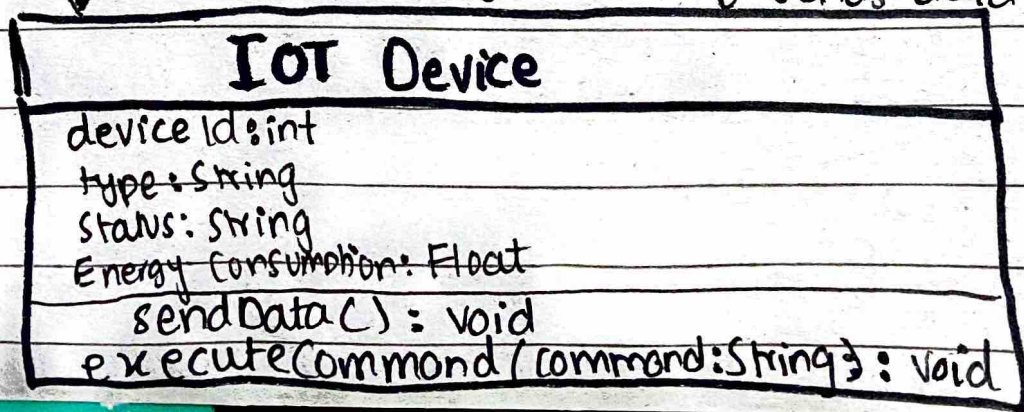 IOT Device
deviceId:int
type:String
Status: String
Energy Consumption: Float
sendData(): void
executeCommand(command:String}: void